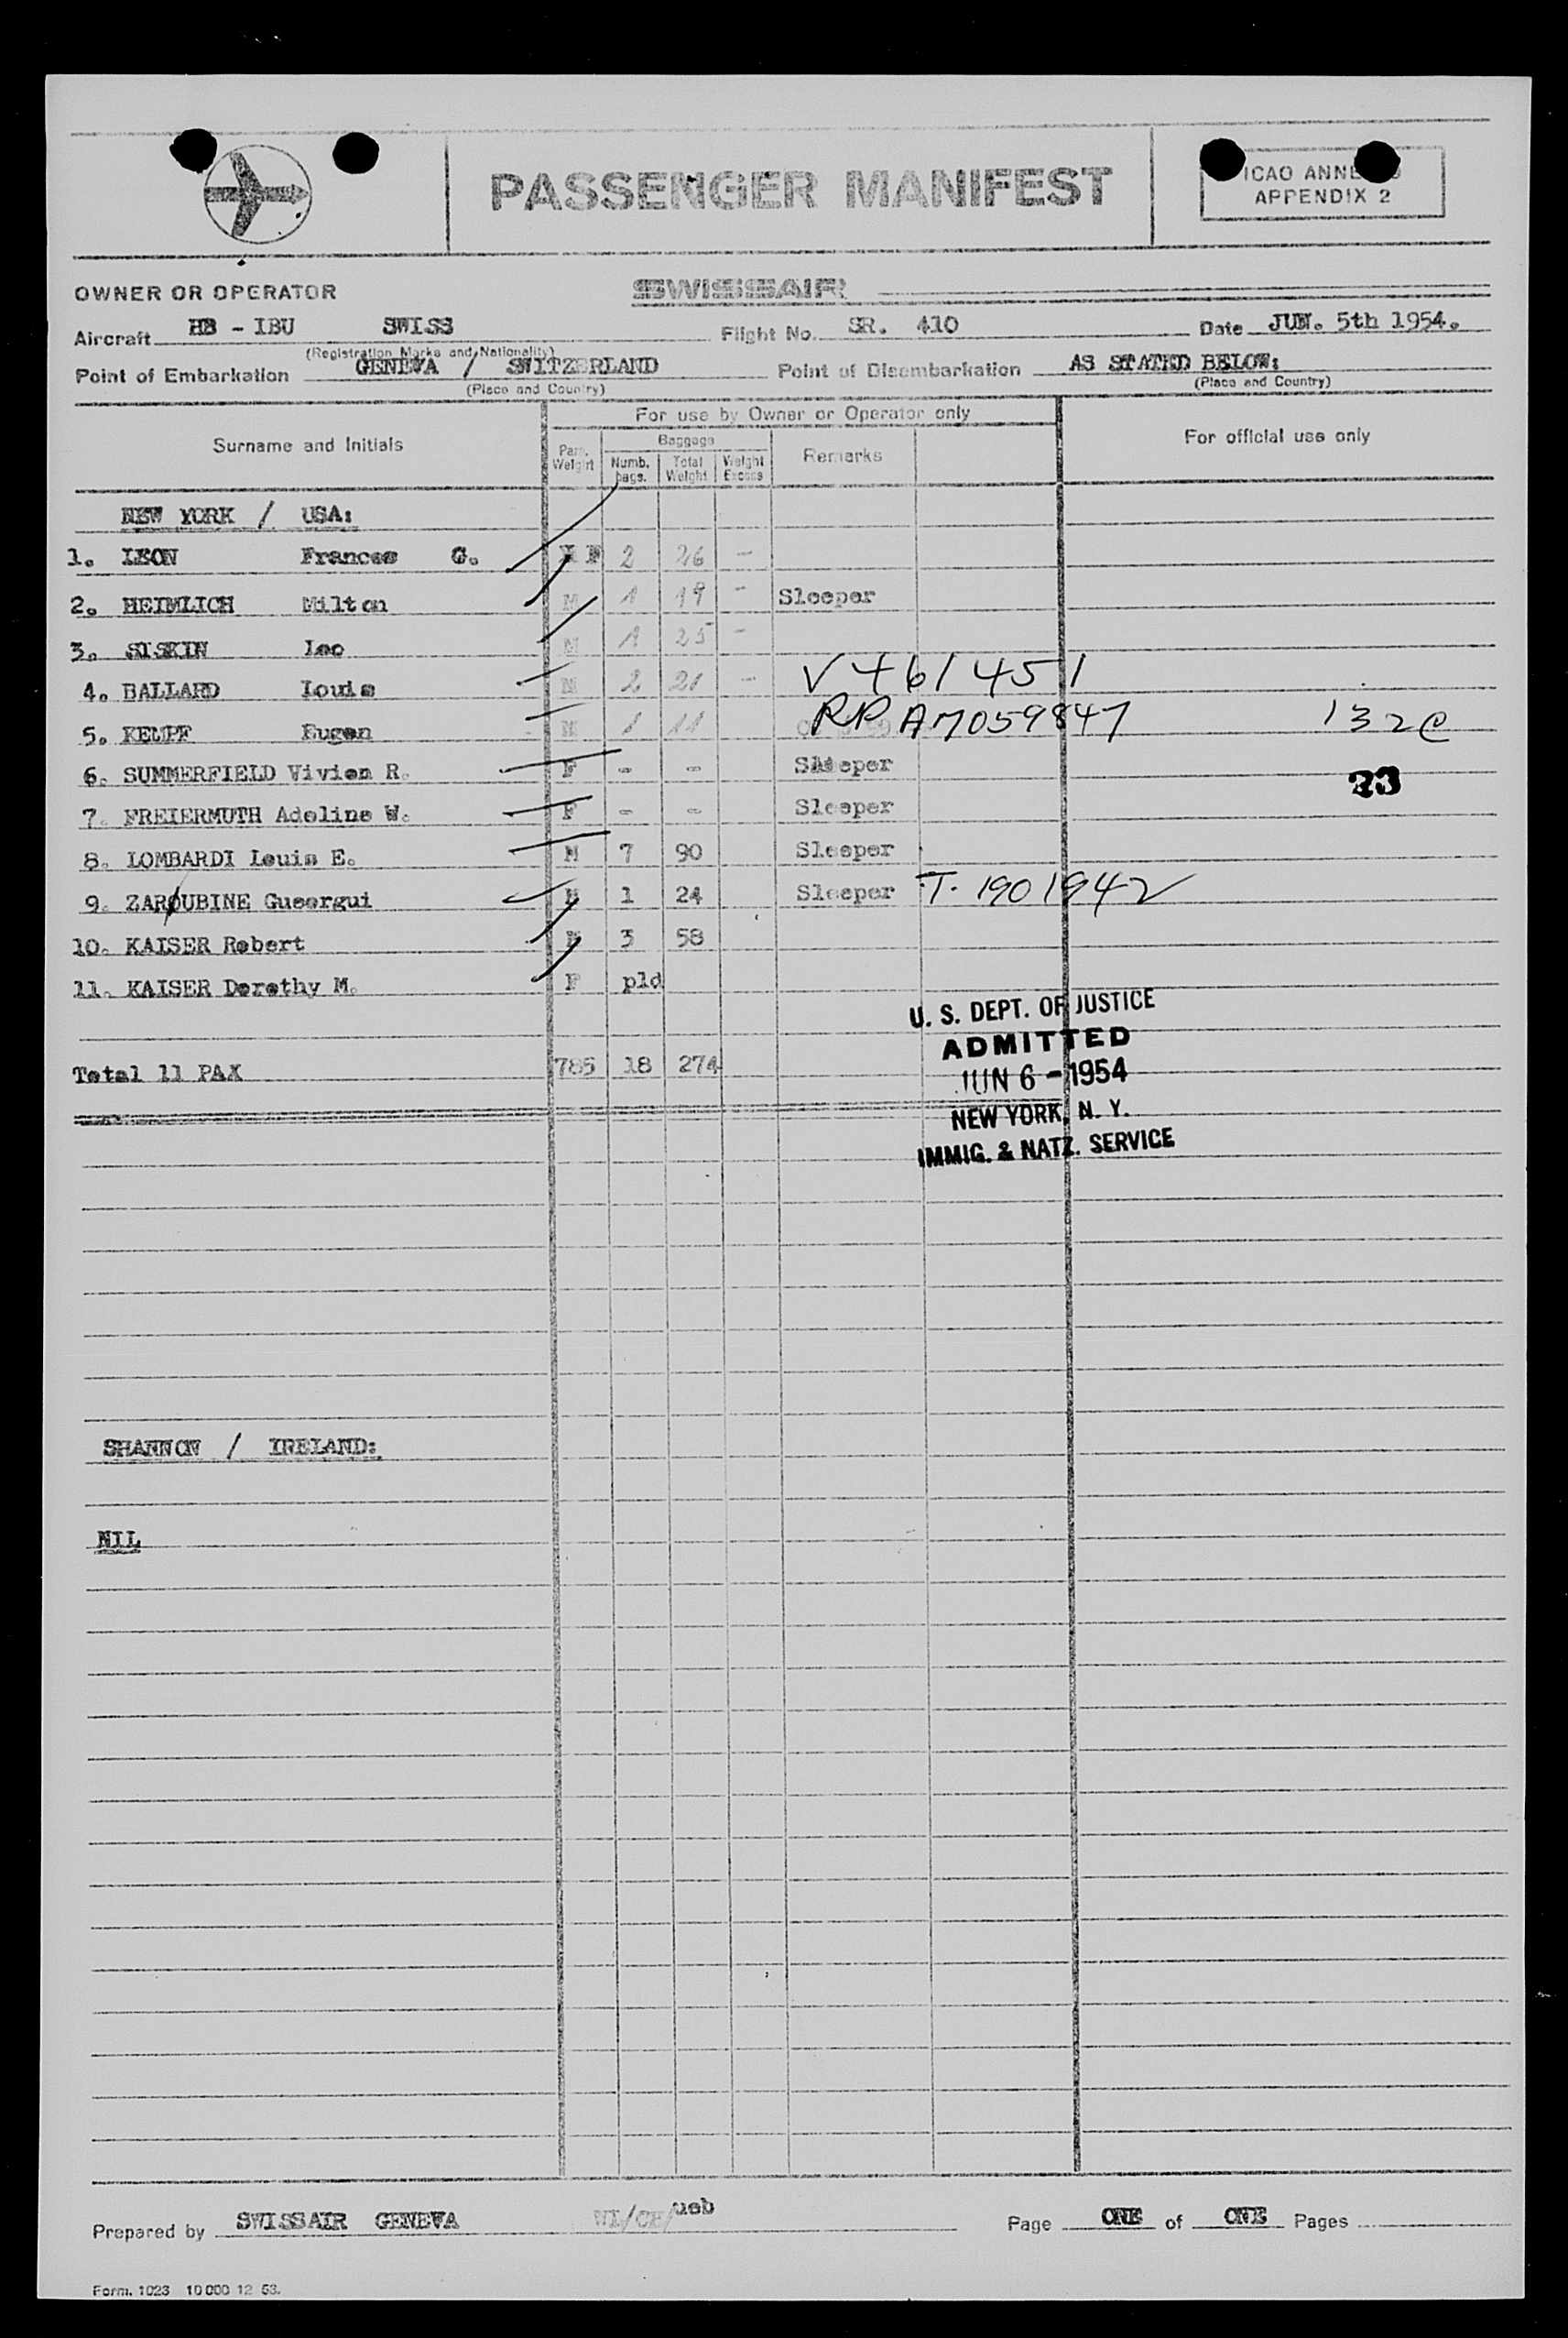 PASSENGER MANIFEST
ICAO ANNE
APPENDIX 2
OWNER OR OPERATOR SWISSAIR
Aircraft HB - IBU SWISS Flight No. SR. 410 Date JUN. 5th 1954.
(Registration Marks and Nationality)
Point of Embarkation GENEVA / SWITZERLAND Point of Disembarkation AS STATED BELOW:
(Place and Country) (Place and Country)
For use by Owner or Operator only
Surname and Initials Baggage Remarks For official use only
Pass. Weight Numb. bags. Total Weight Weight Excess
NEW YORK / USA:
1. LEON Frances G. F 2 26 -
2. HEIMLICH Milton M 1 19 - Sleeper
3. SISKIN Leo M 1 25 -
4. BALLARD Louis M 2 21 - V 461451
5. KEMPF Eugen M 1 11 RP A7059847 132C
6. SUMMERFIELD Vivien R. F - - Sleeper 23
7. FREIERMUTH Adeline W. F - - Sleeper
8. LOMBARDI Louis E. M 7 90 Sleeper
9. ZAROUBINE Gueorgui M 1 24 Sleeper T. 1901942
10. KAISER Robert M 3 58
11. KAISER Dorothy M. F pld
U. S. DEPT. OF JUSTICE
ADMITTED
Total 11 PAX 785 18 274
JUN 6 - 1954
NEW YORK, N. Y.
IMMIG. & NATZ. SERVICE
SHANNON / IRELAND:
NIL
Prepared by SWISSAIR GENEVA WL/CE/ueb Page ONE of ONE Pages
Form. 1023 10 000 12 53.